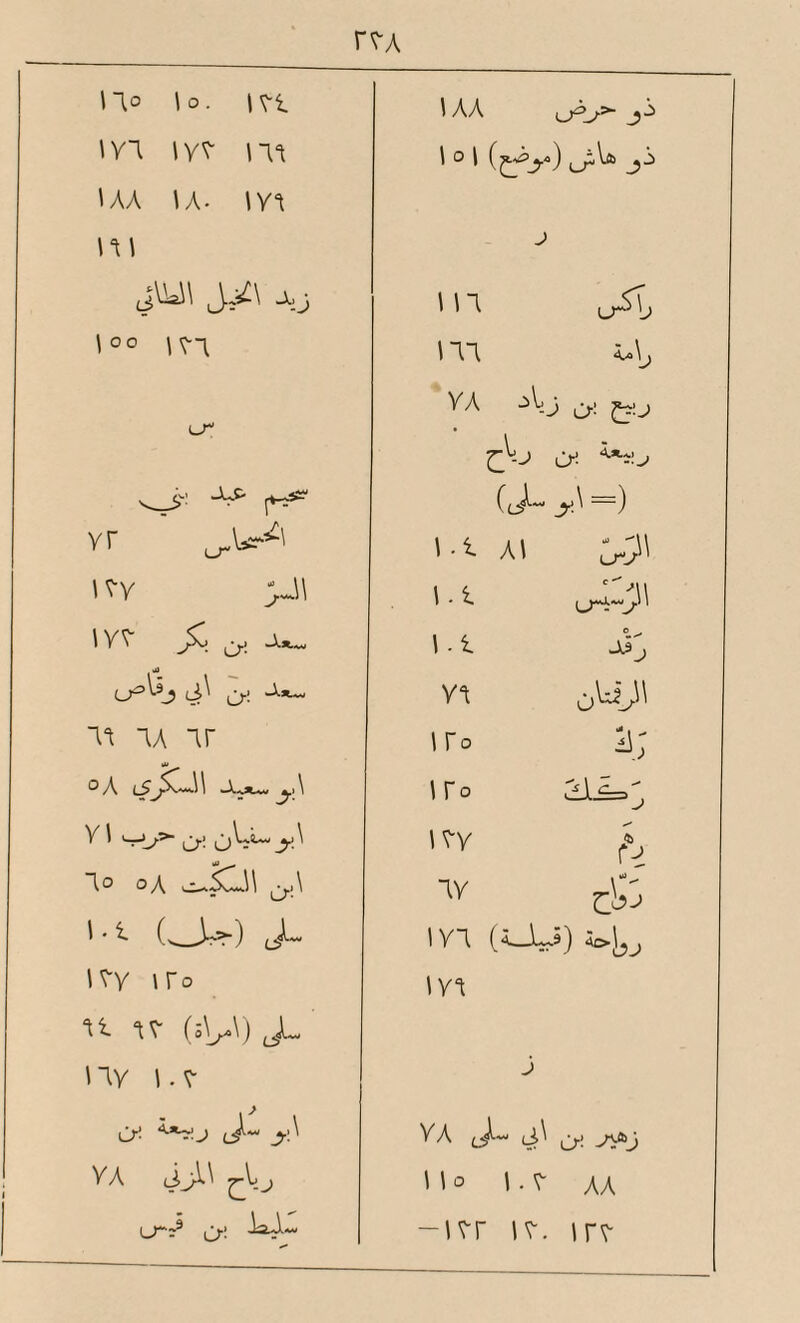 ٢٣٨
ذو حرض ١٨٨
ذو هاش (موضع) ١٥١
ر
راكس ١١٦
رامة ١٦٦
ربيع بن زياد ٧٨
ربيعة بن رباح
(= ابو سلمى)
الرَّسّ ٨١ ١٠٤
الرَّسَيْس ١٠٤
رَقْد ١٠٤
الرقمتان ٧٩
رَكّ ١٢٥
رَكَكَ ١٢٥
رِمَ ١٣٧
رَوَّاح ٦٧
رواحة (قبيلة) ١٧٦
١٧٩
ز
زهير بن ابي سلمى ٧٨
٨٨ ١٠٣ ١١٥
١٢٣ ١٣٠ ١٣٢—
١٣٤ ١٥٠ ١٦٥
١٦٩ ١٧٣ ١٧٦
١٧٩ ١٨٠ ١٨٨
١٩١
زيد الخيل الطائي
١٣٦ ١٥٥
س
سحيم عبد بني
الحسحاس ٧٢
السرّ ١٣٧
سعد بن بكر ١٧٣
سعد بن ابي وقّاص
٦٢ ٦٨ ٦٩
ابو سعيد السكّري ٥٨
ابو سفيان بن حرب ٧١
ابن السكّيت ٥٨ ٦٥
سلمى (جبل) ١٠٤
١٢٥ ١٣٧
سلمى (امراة) ٩٣ ٩٤
١٠٣ ١٦٧
ابو سُلمى ربيعة بن
رباح المزني ٧٨
سَلِيط بن قيس